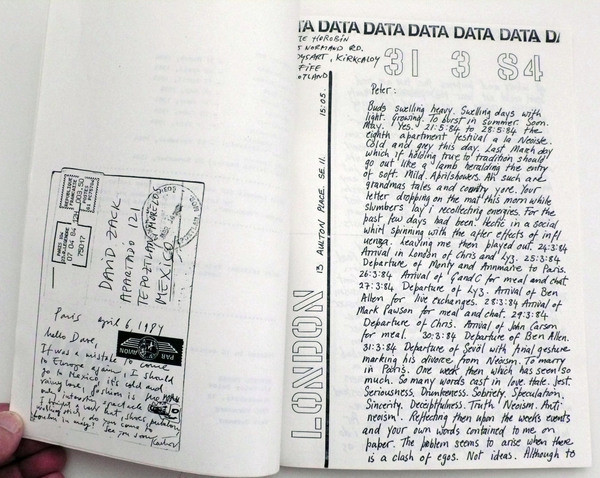 REPUBLIQUE
FRANCAISE
POSTES
PARIS
07 04 84
75017
DAVID ZACK
APARTADO 121
TEPOZTLAN, MORELOS
MEXICO
Paris april 6, 1984
PAR AVION
hello Dave,
It was a mistake to come
to Europe again, I should
go to Mexico, it's cold and
rainy here,
TA DATA DATA DATA DATA DATA DA
TE HOROBIN
5 NORMAND RD.
DYSART, KIRKCALDY
FIFE
OTLAND
31 3 84
15:05.
13 AULTON PLACE. SE 11.
LONDON
Peter:
Buds swelling heavy. Swelling days with
light. Growing. To burst in summer. Soon.
May. Yes. 21:5:84 to 28:5:84 the
eighth apartment festival a la Neoiste.
Cold and grey this day. Last March day
which if holding true to tradition should
go out like a lamb heralding the entry
of soft. Mild. Aprilshowers. Ah such are
grandmas tales and country yore. Your
letter dropping on the mat this morn while
slumbers lay i recollecting energies. For the
past few days had been. Hectic in a social
whirl spinning with the after effects of infl
uenza. Leaving me then played out. 24:3:84
Arrival in London of Chris and Ly3. 25:3:84
Departure of Monty and Annmarie to Paris.
26:3:84 Arrival of G and C for meal and chat.
27:3:84 Departure of Ly3. Arrival of Ben
Allen for live exchanges. 28:3:84 Arrival of
Mark Pawson for meal and chat. 29:3:84
Departure of Chris. Arrival of John Carson
for meal. 30:3:84 Departure of Ben Allen.
31:3:84 Departure of Sevol with final gesture
marking his divorce from Neoism. To marry
in Paris. One week then which has seen so
much. So many words cast in love. Hate. Jest.
Seriousness. Drunkeness. Sobriety. Speculation.
Sincerity. Deceiptfulness. Truth. Neoism. Anti
neoism. Reflecting then upon the weeks events
and your own words contained to me on
paper. The problem seems to arise when there
is a clash of egos. Not ideas. Although to